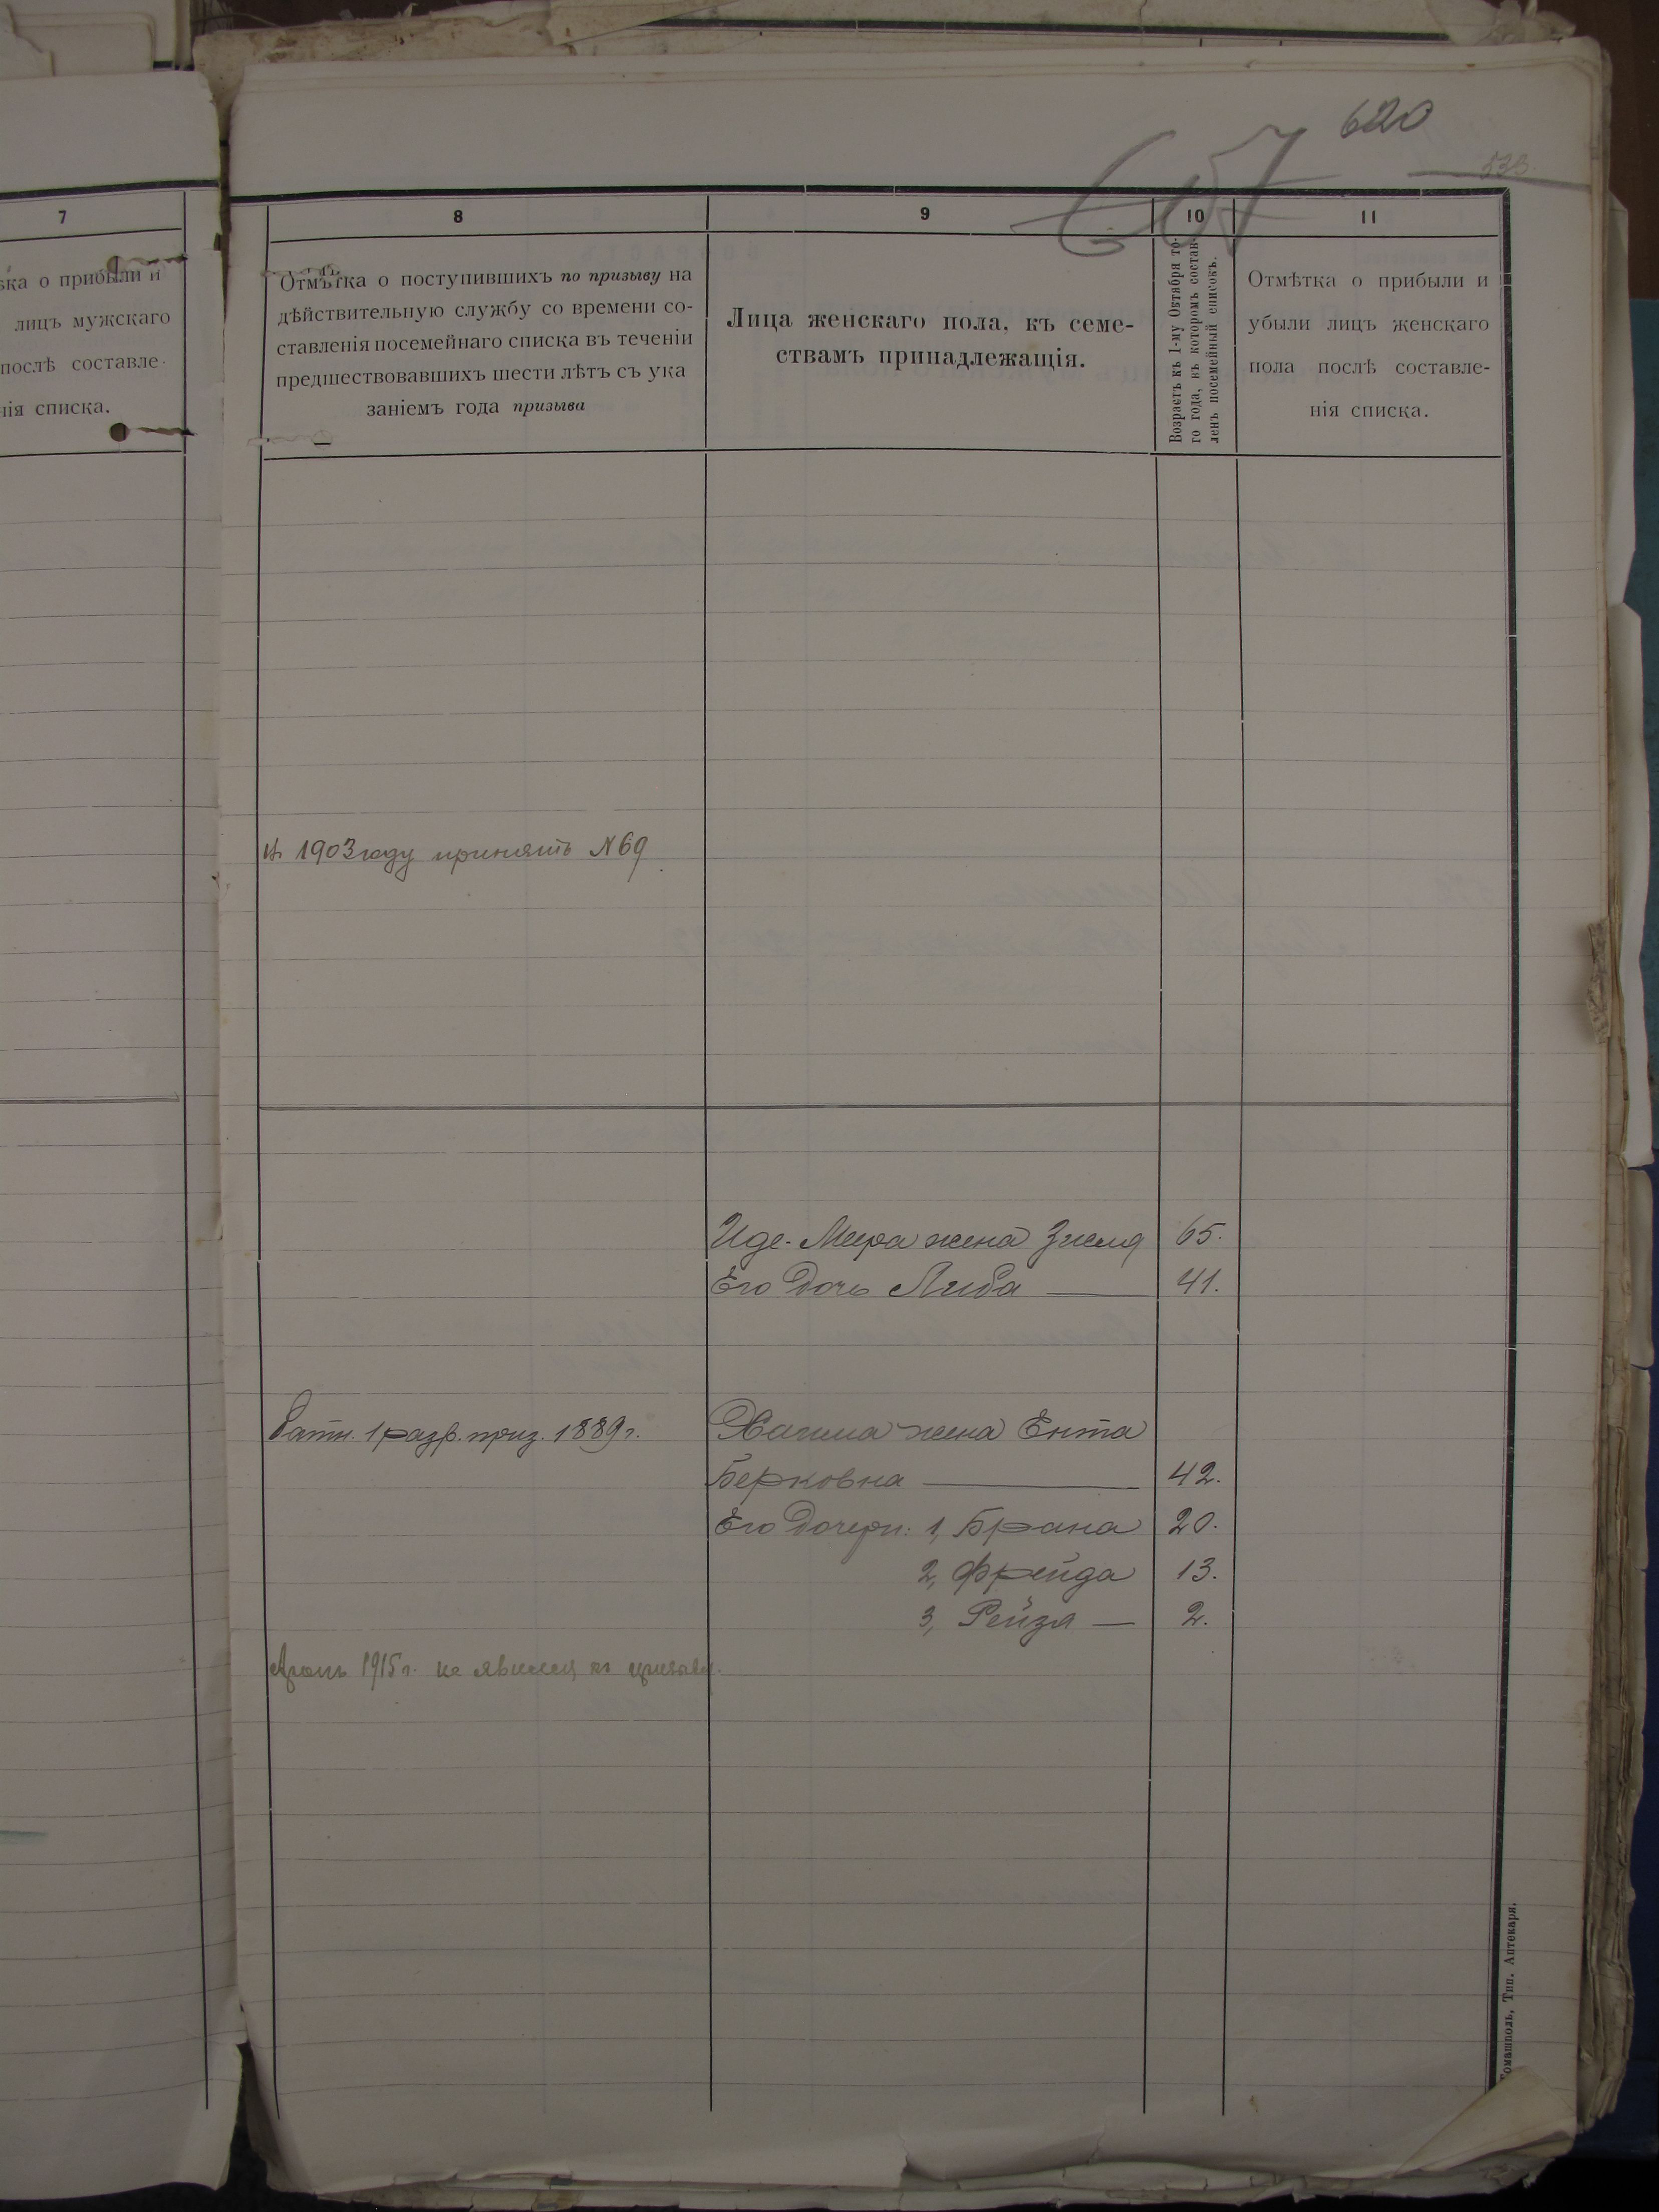 620
607
533.
7
вка о прибыли и
лицъ мужскаго
послѣ составле-
нія списка.
8
Отмѣтка о поступившихъ по призыву на
дѣйствительную службу со времени со-
ставленія посемейнаго списка въ теченіи
предшествовавшихъ шести лѣтъ съ ука
заніемъ года призыва
9
Лица женскаго пола, къ семе-
ствамъ принадлежащія.
10
Возрастъ къ 1-му Октября то-
го года, въ которомъ состав-
ленъ посемейный списокъ.
11
Отмѣтка о прибыли и
убыли лицъ женскаго
пола послѣ составле-
нія списка.
въ 1903 году принятъ N 69
Иде-Мера жена Зисля 65.
Его дочь Либа 41.
Ратн. 1 разр. приз. 1889 г.
Хаима жена Ента
Берковна 42.
Его дочери: 1, Брана 20.
2, Фрейда 13.
3, Рейзя 2.
1915 г. не явился къ призыву.
Томашполь, Тип. Аптекаря.